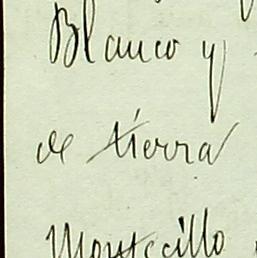 Blanco y
de tierra
Montecillo